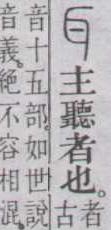 耳主聽者也。
者
古
音十五部。如世說
音義。絕不容相混。